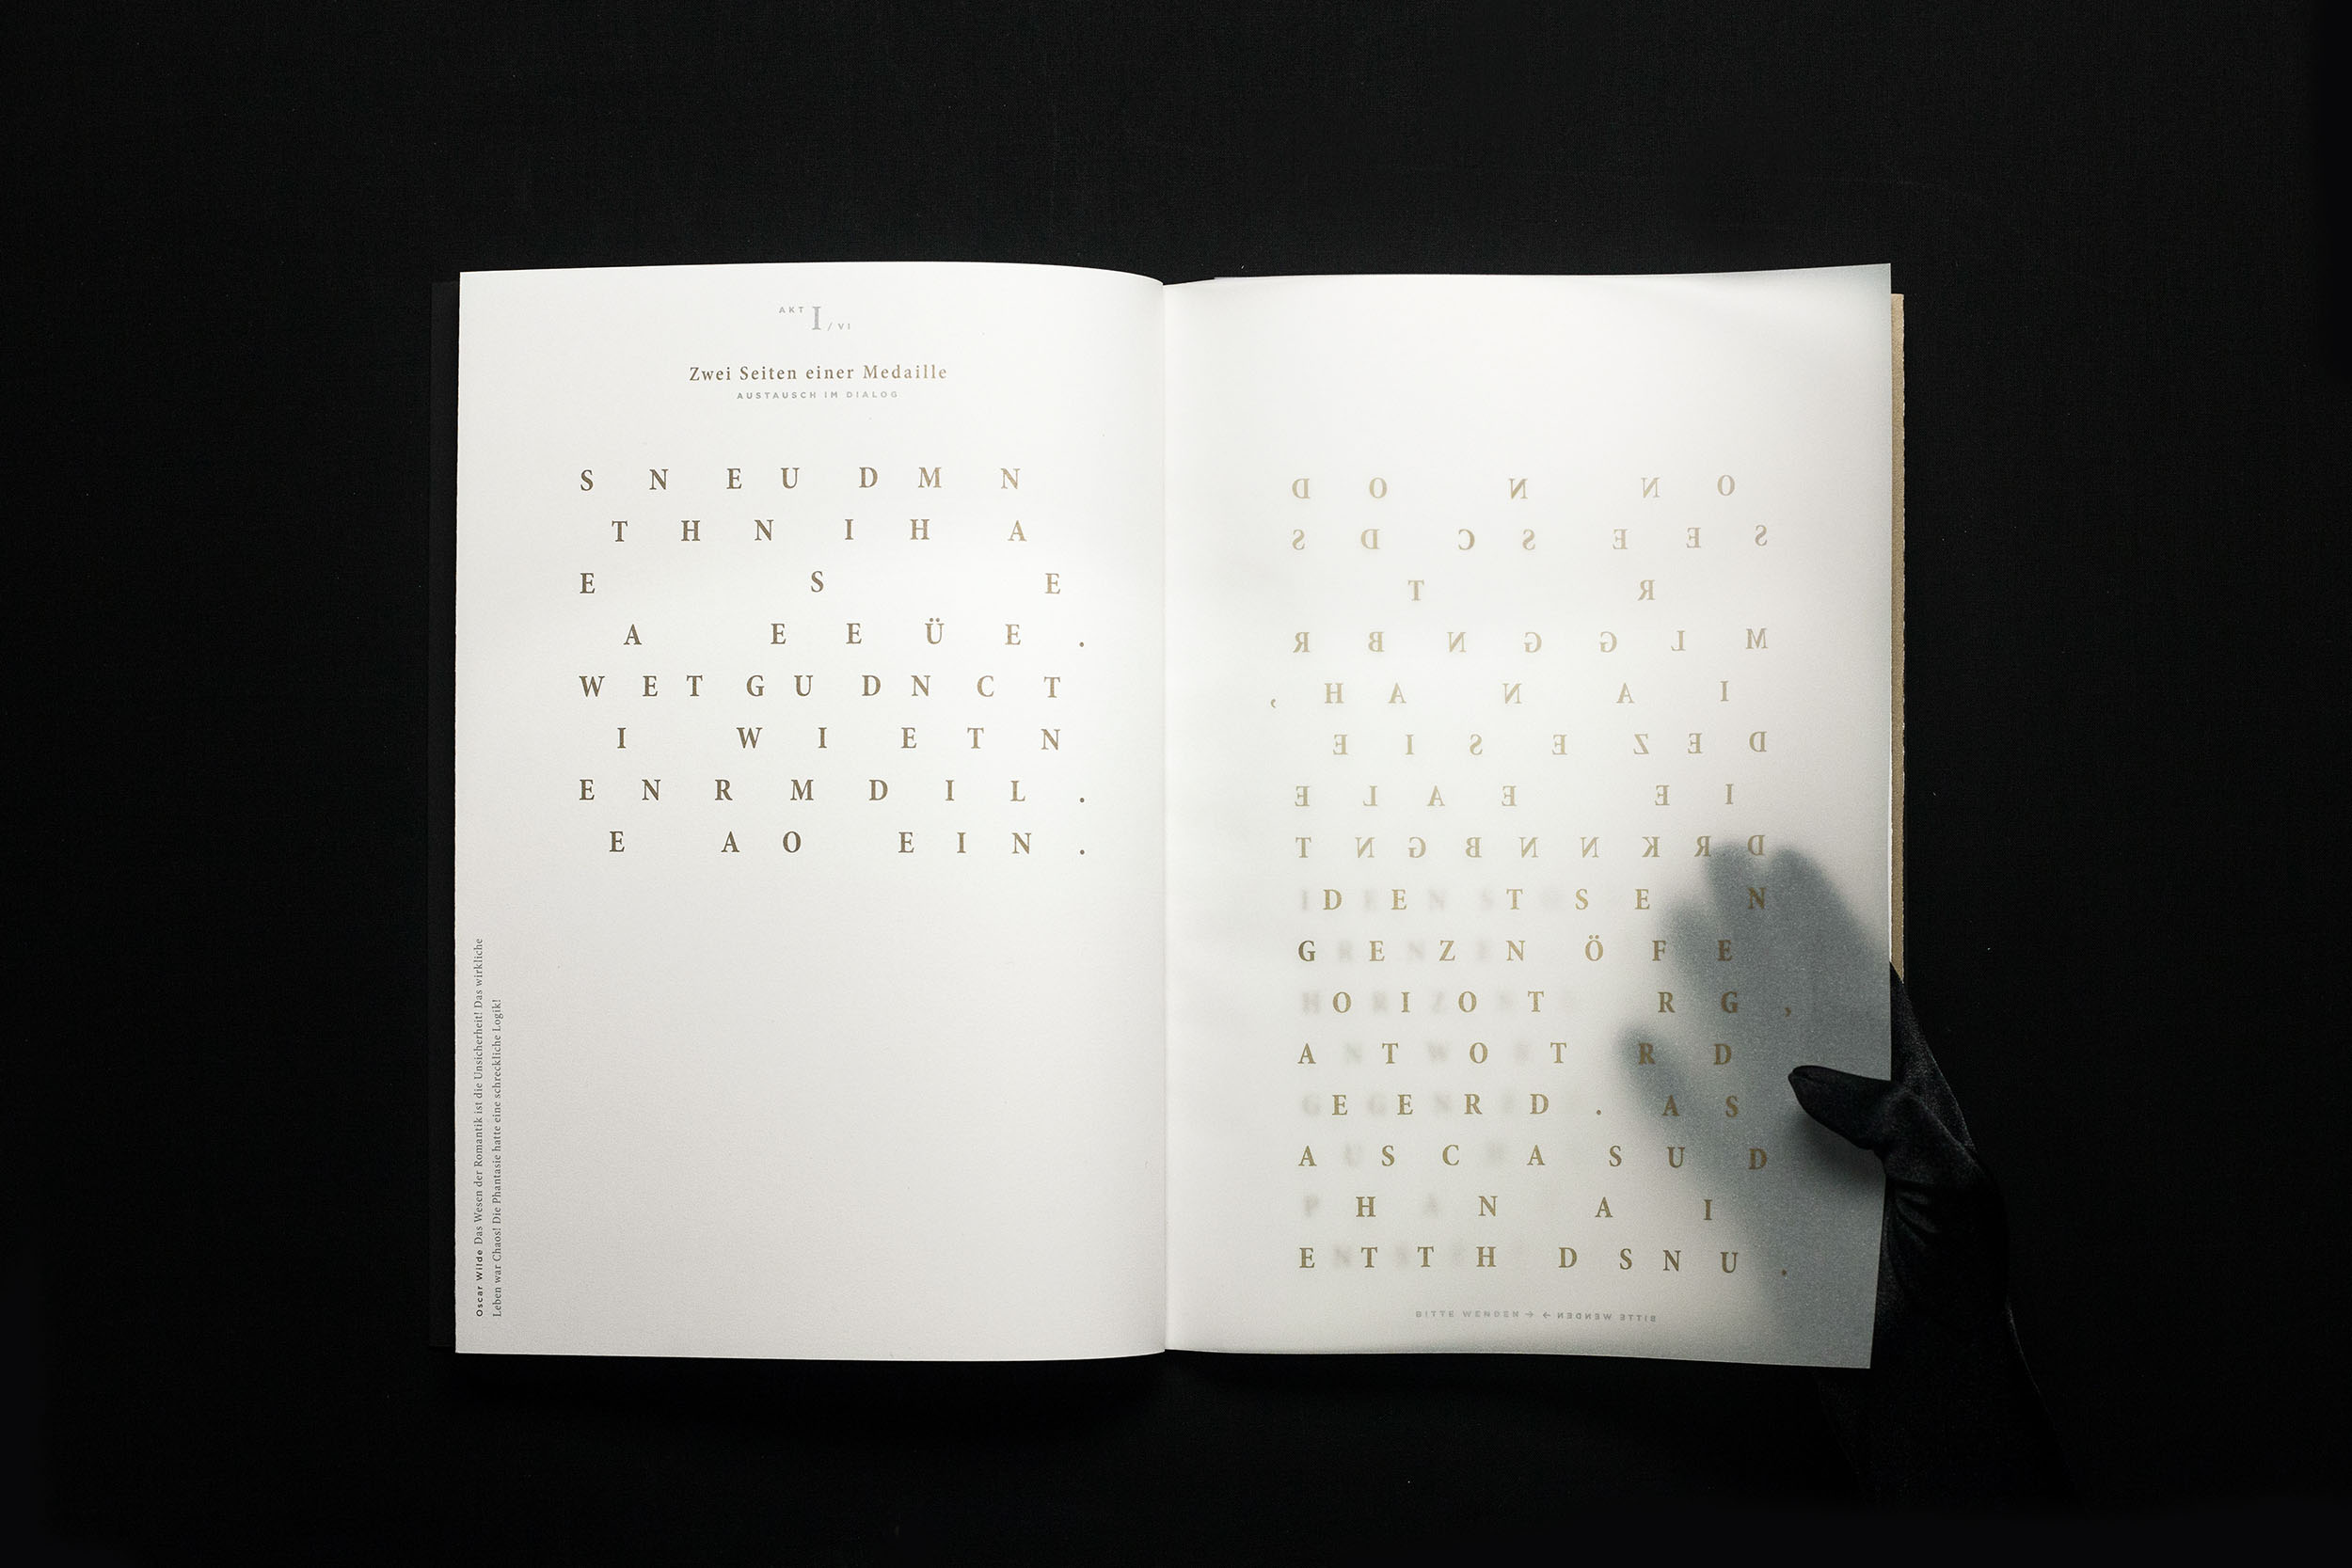 AKT I / VI
Zwei Seiten einer Medaille
AUSTAUSCH IM DIALOG
S N E U D M N
T H N I H A
E S E
A E E Ü E .
W E T G U D N C T
I W I E T N
E N R M D I L .
E A O E I N .
Oscar Wilde Das Wesen der Romantik ist die Unsicherheit! Das wirkliche
Leben war Chaos! Die Phantasie hatte eine schreckliche Logik!
O N N O D
S E E S C D S
R T
M L G G N B R
I A N A H ,
D E Z E S I E
I E E A L E
D R K N N B G N T
D E T S E N
G E Z N Ö F E
O I O T R G ,
A T O T R D
E E R D . A S
A S C A S U D
H N A I
E T T H D S N U .
BITTE WENDEN → ← BITTE WENDEN